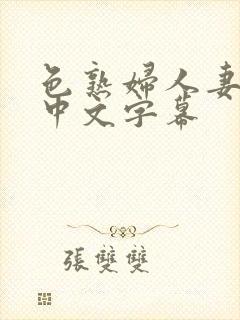 色熟婦人妻
中文字幕
張雙雙